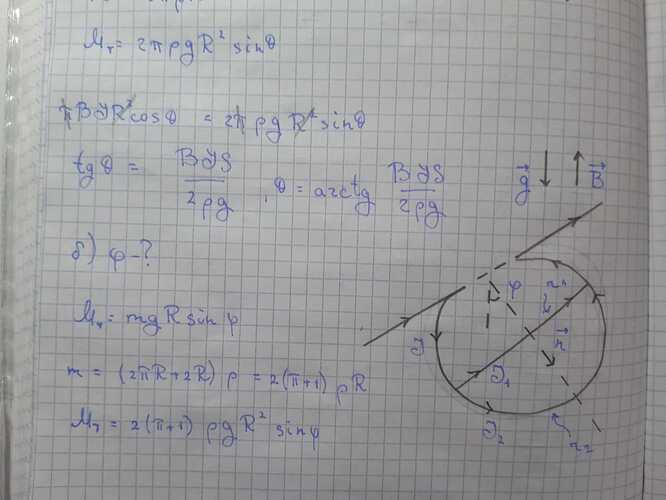 M_T = 2πρgR² sinθ
πBJR²cosθ = 2πρgR² sinθ
tg θ = BJS / 2ρg , θ = arctg BJS / 2ρg
g⃗ B⃗
б) φ - ?
φ
M_T = mgR sin φ
n⃗
J
m = (2πR + 2R) ρ = 2(π+1) ρR
J₁
M_T = 2(π+1) ρgR² sinφ
J₂